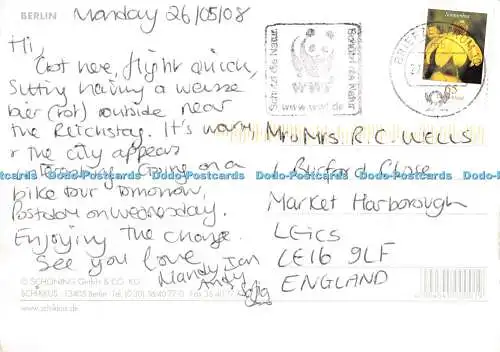 BERLIN
Monday 26/05/08
Hi,
Got here, flight quick,
Sitting having a weisse
bier (rot) outside near
the Reichstag. It's warm
& the city appears
interesting. Going on a
bike tour tomorrow,
Potsdam on Wednesday.
Enjoying the change.
See you love
Mandy Ian
Andy
Schützt die Natur
WWF
www.wwf.de
Schützt die Natur
BRIEFZENTRUM
Sonnenhut
65
Mr & Mrs R.C. WELLS
1 Burford Close
Market Harborough
LEICS
LE16 9LF
ENGLAND
Dodo-Postcards Dodo-Postcards Dodo-Postcards Dodo-Postcards Dodo-Postcards
© SCHÖNING GmbH & CO. KG
SCHIKKUS · 13405 Berlin · Tel. (0 30) 36 40 77-0 · Fax 36
www.schikkus.de